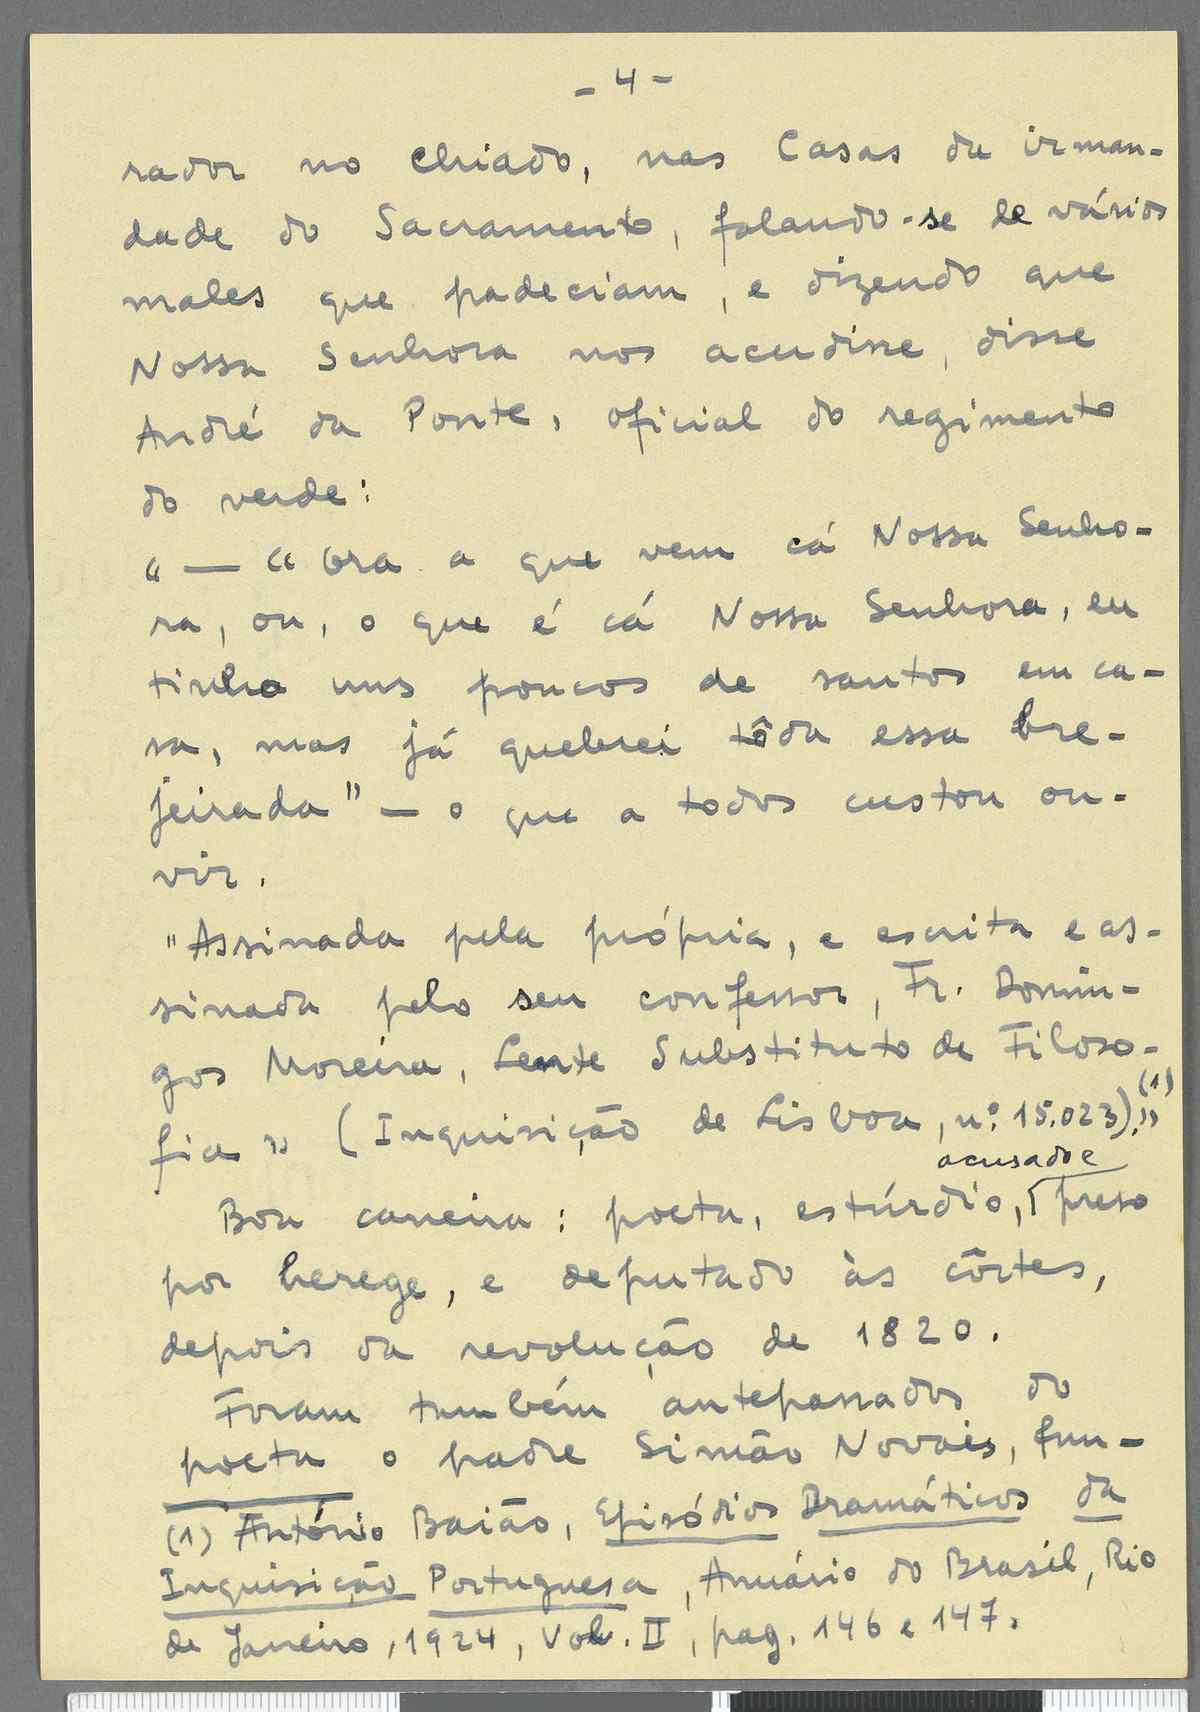 - 4 -
rador no Chiado, nas Casas da irman-
dade do Sacramento, falando-se de vários
males que padeciam, e dizendo que
Nossa Senhora nos acudisse, disse
André da Ponte, oficial do regimento
do verde:
"— "Ora a que vem cá Nossa Senho-
ra, ou, o que é cá Nossa Senhora, eu
tinha uns poucos de santos em ca-
sa, mas já quebrei tôda essa bre-
jeirada" — o que a todos custou ou-
vir.
"Assinada pela própria, e escrita e as-
sinada pelo seu confessor, Fr. Domin-
gos Moreira, Lente Substituto de Filoso-
fia" (Inquisição de Lisboa, n.º 15.023)." (1)
acusado e
Boa carreira: poeta, estúrdio, preso
por herege, e deputado às côrtes,
depois da revolução de 1820.
Foram também antepassados do
poeta o padre Simão Novais, fun-
(1) António Baião, Episódios Dramáticos da
Inquisição Portuguesa, Anuário do Brasil, Rio
de Janeiro, 1924, Vol. II, pag. 146 e 147.